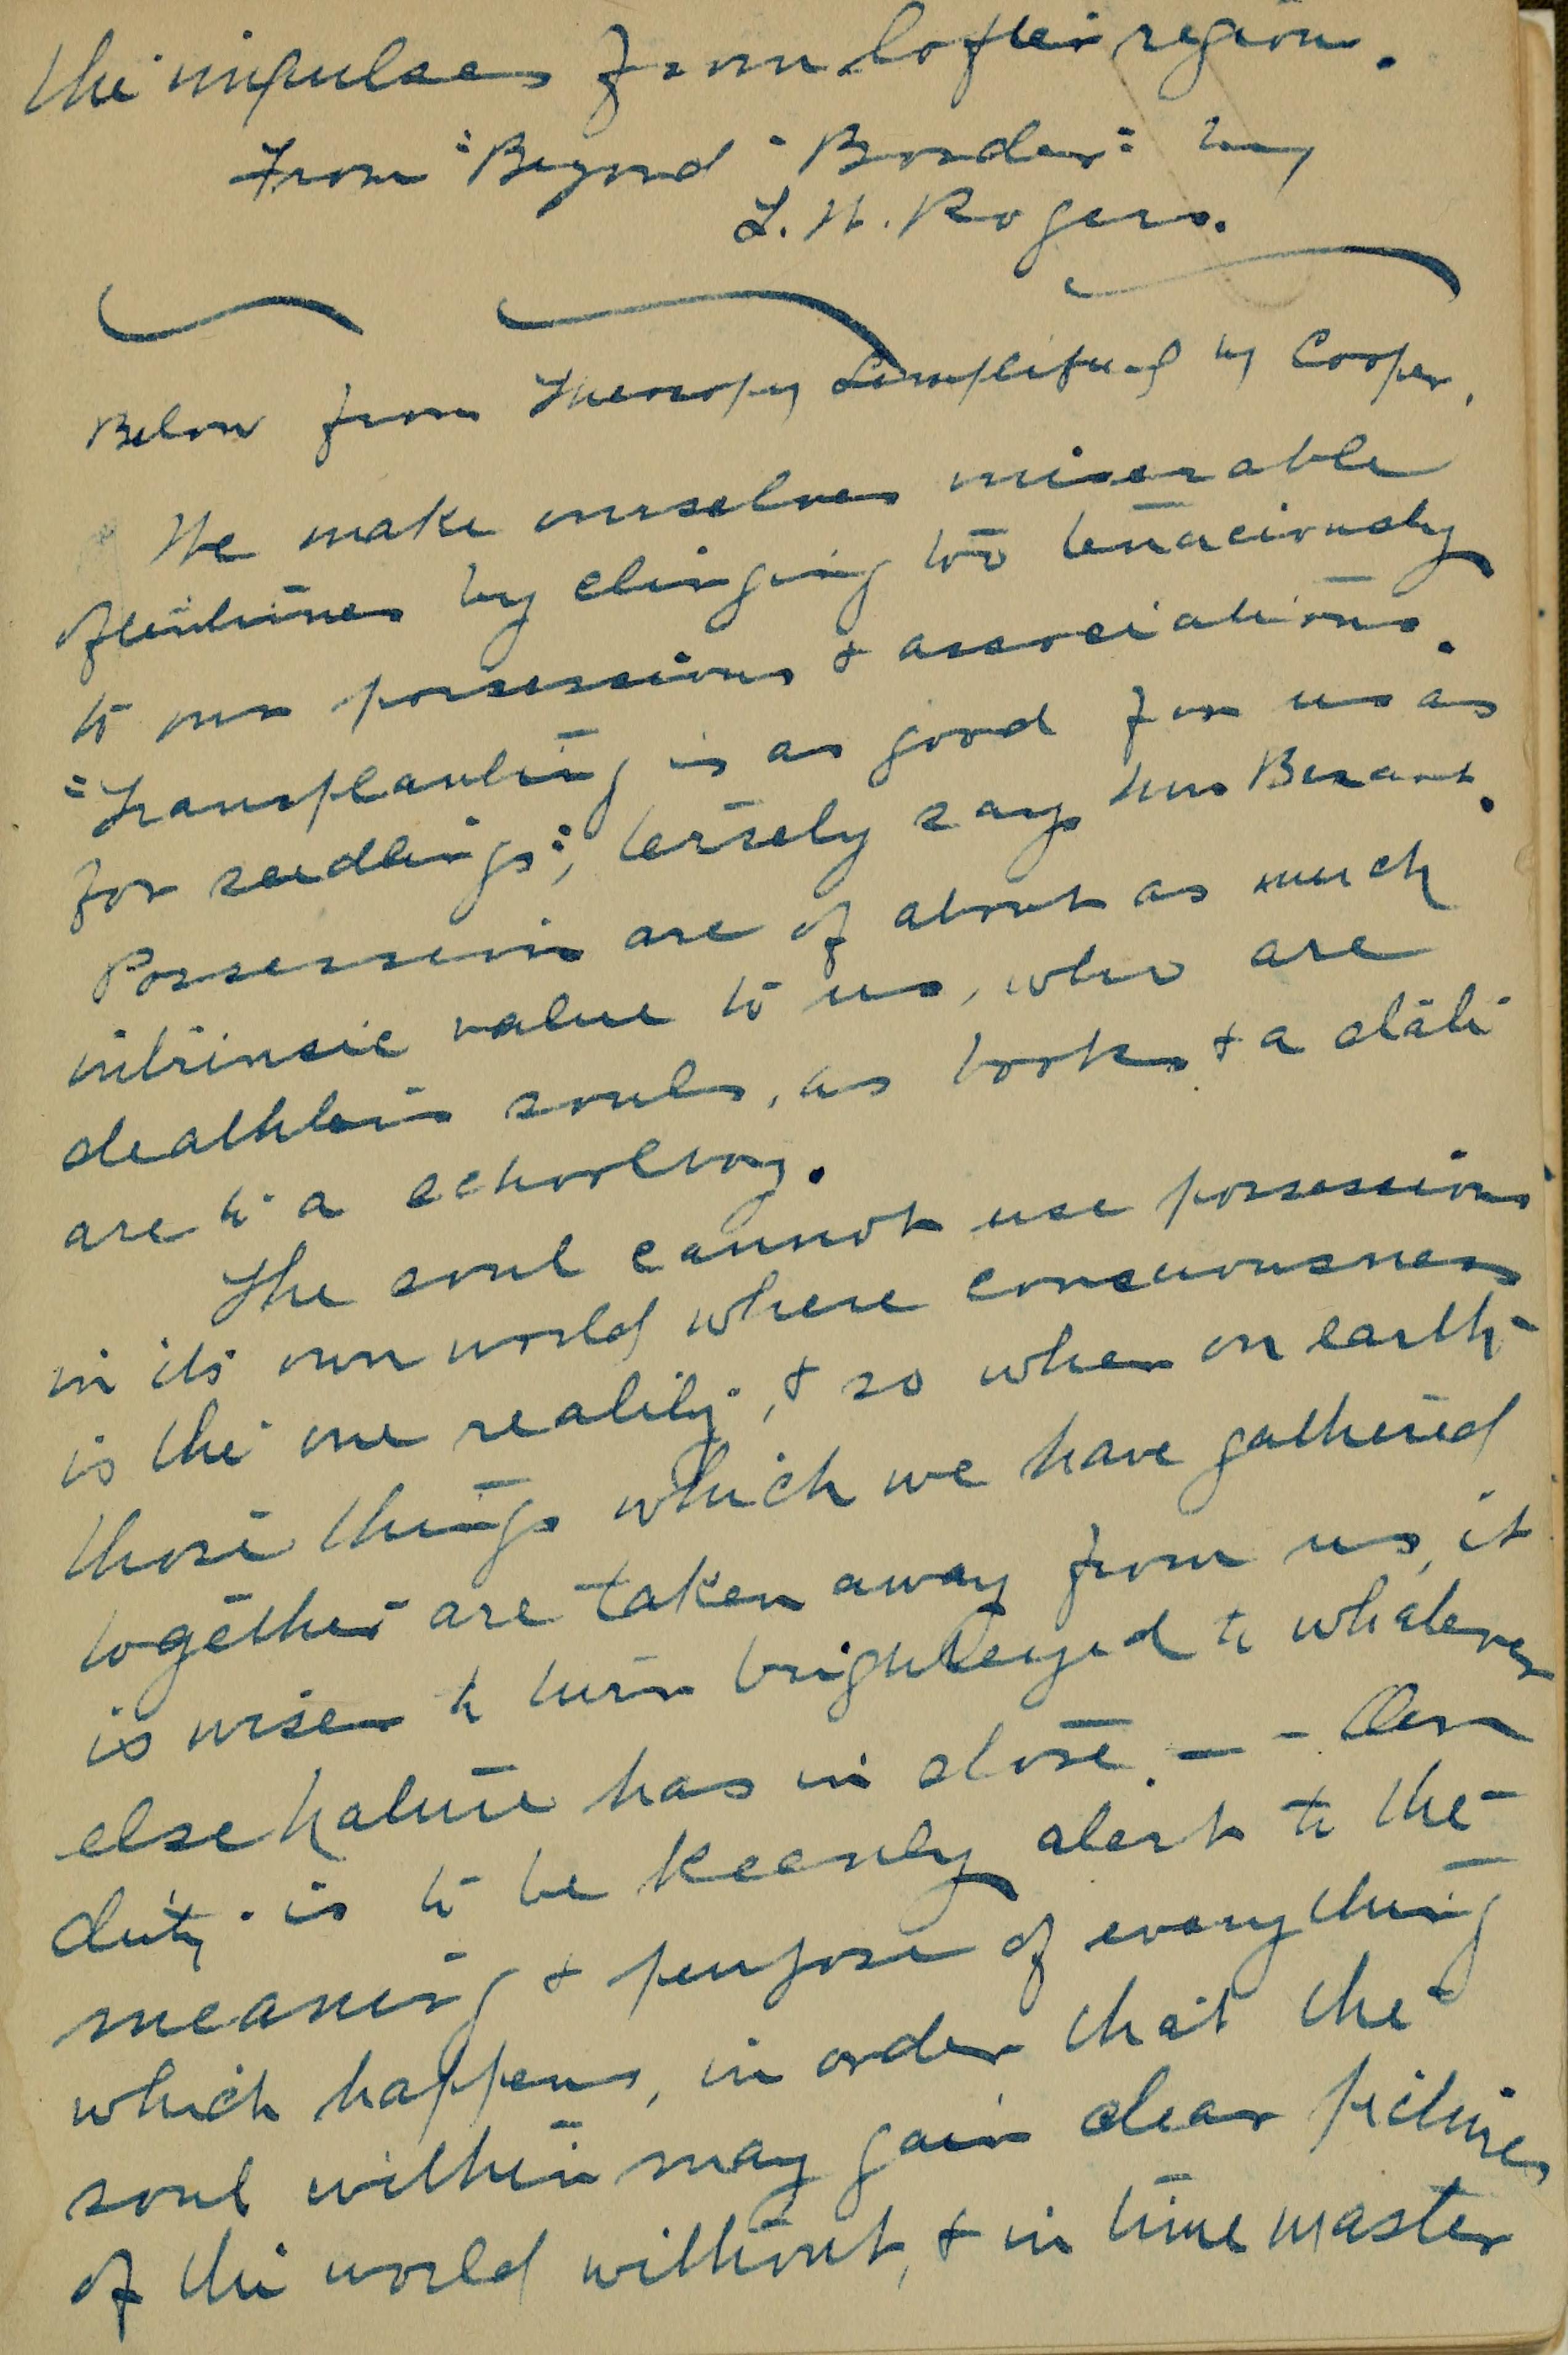 the impulses from loftier regions.
From "Beyond " Border" by
L. W. Rogers.
Below from Theosophy Simplified by Cooper,
We make ourselves miserable
oftentimes by clinging too tenaciously
to our possessions & associations.
"Transplanting is as good for us as
for seedlings", tersely says Mrs Besant.
Possession are of about as much
intrinsic value to us, who are
deathless souls, as books & a slate
are to a schoolboy.
The soul cannot use possessions
in its own world where consciousness
is the one reality, & so when on earth
those things which we have gathered
together are taken away from us, it
is wiser to turn brighteyed to whatever
else nature has in store. - - Our
duty is to be keenly alert to the
meaning & purpose of everything
which happens, in order that the
soul within may gain clear pictures
of the world without, & in time master